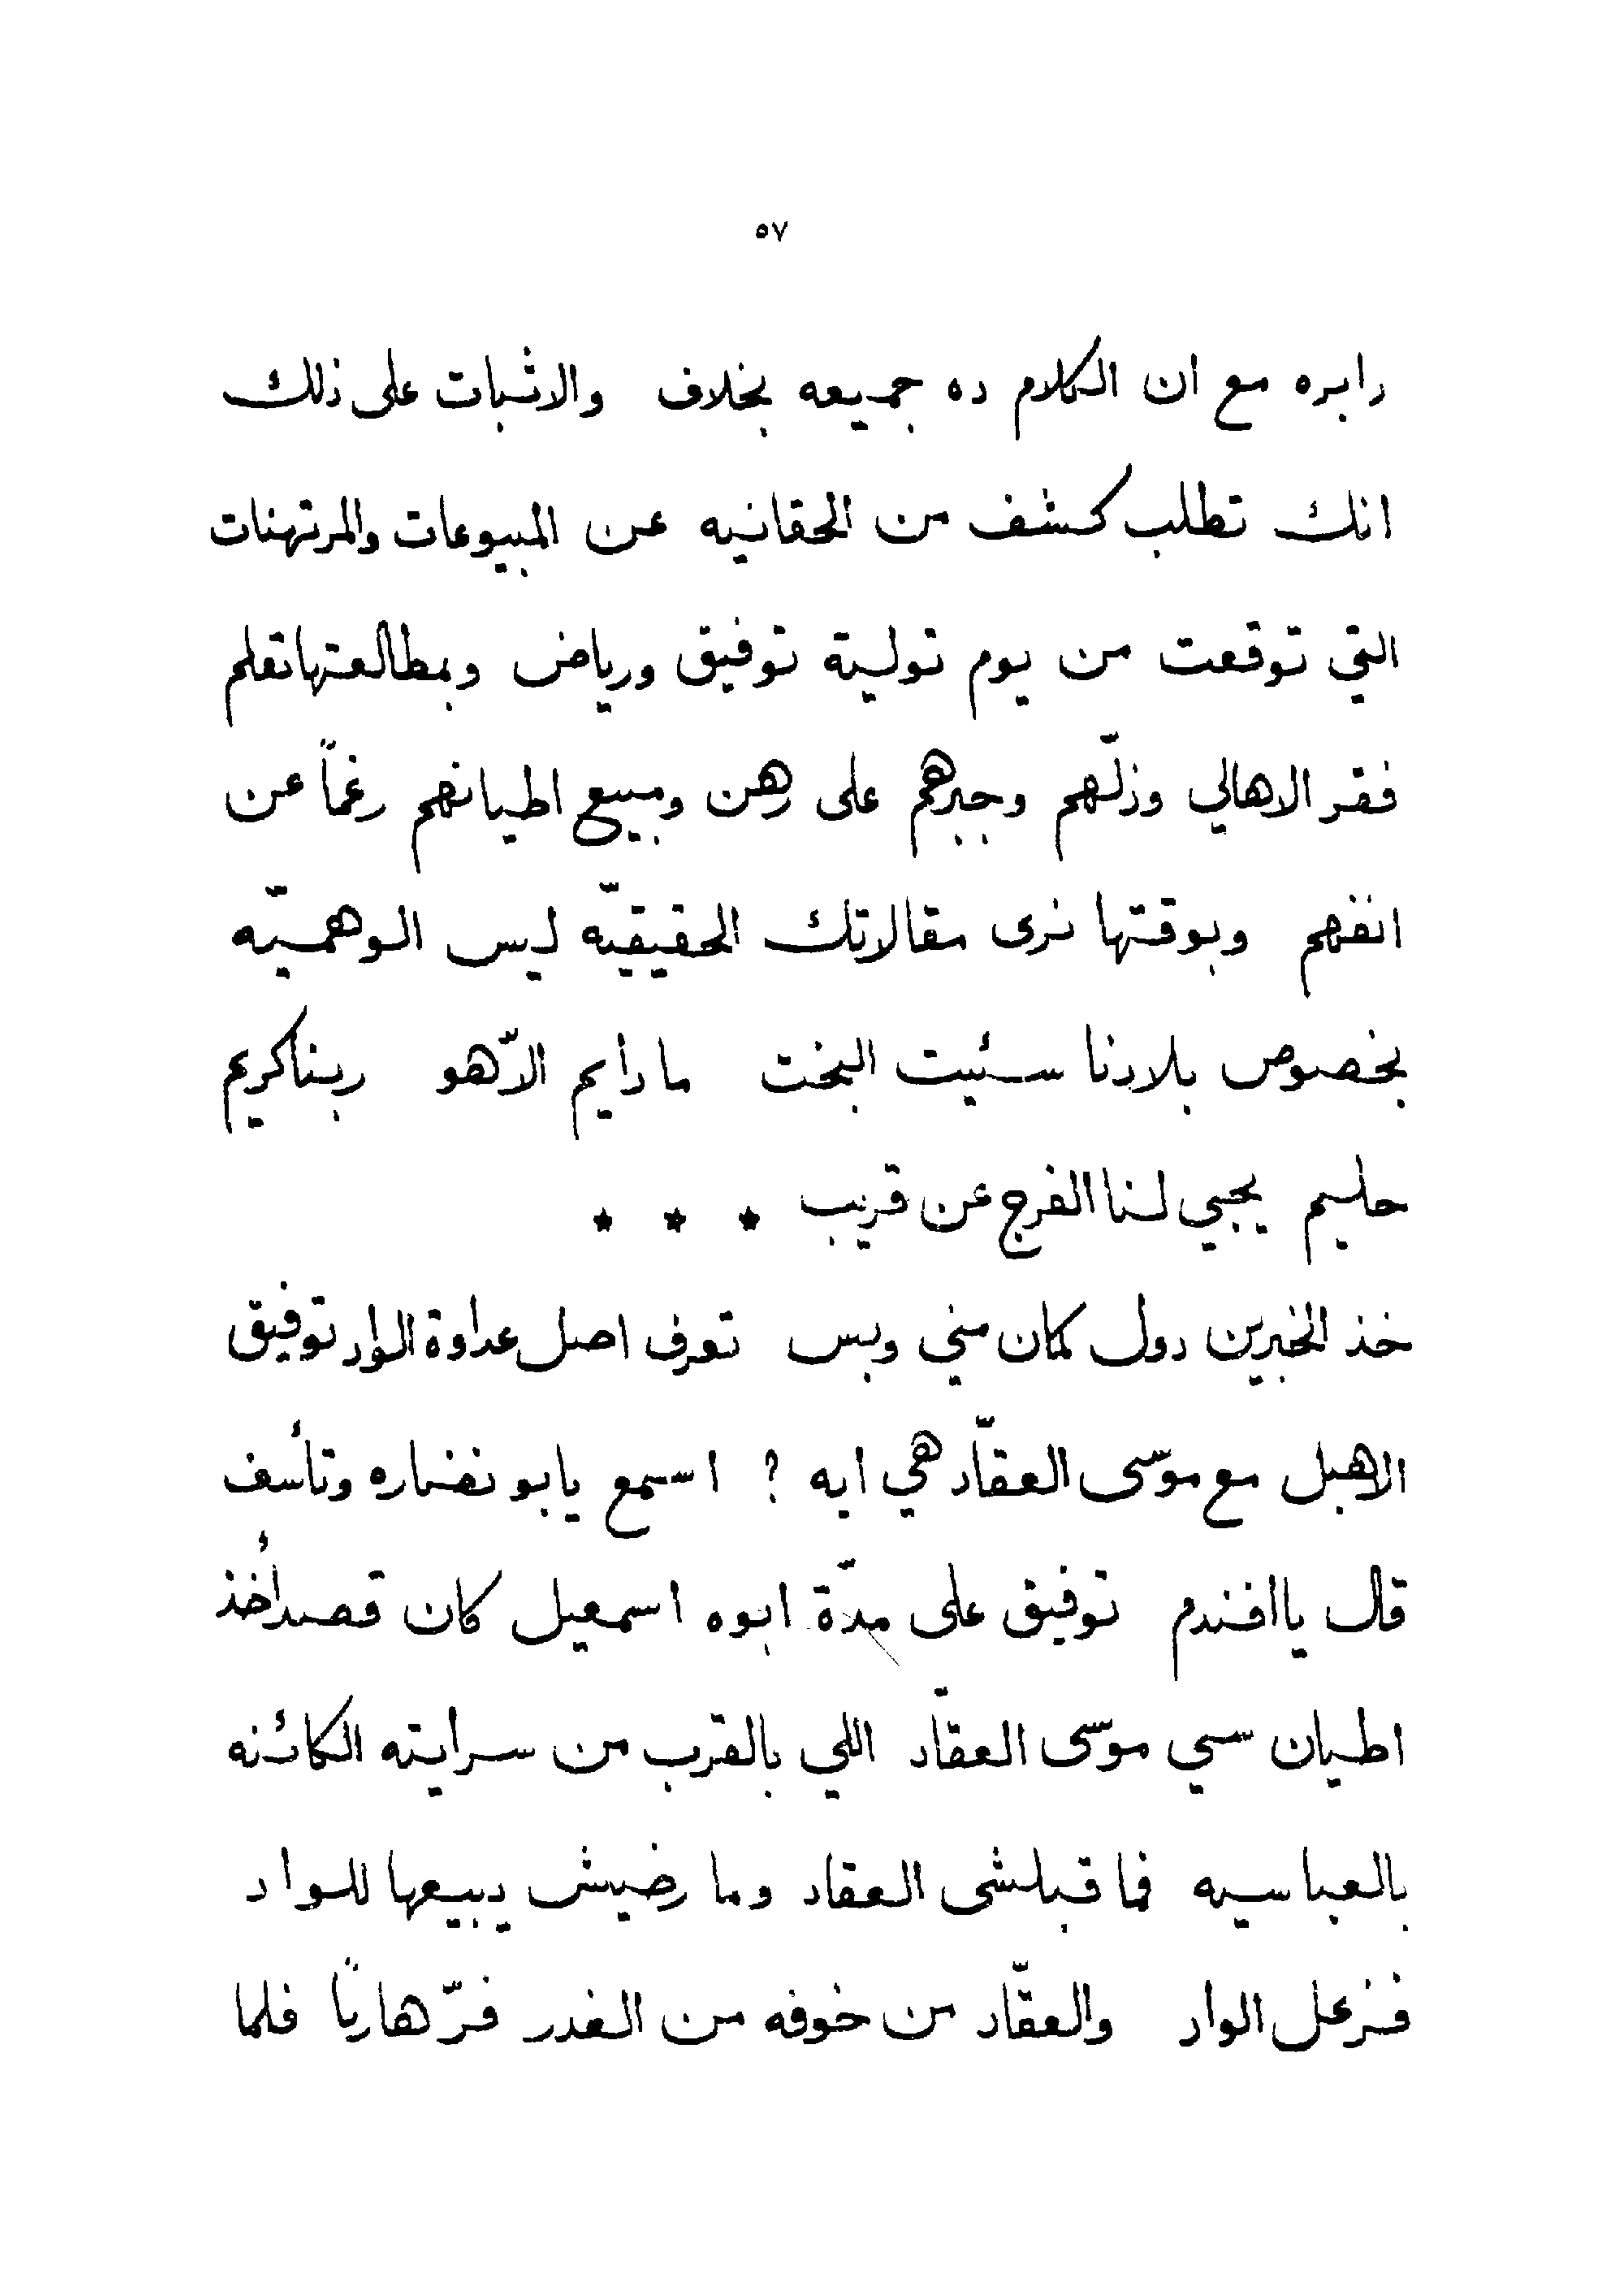 ٥٧
دابره مع ان الكلام ده جميعه بخلاف والاثبات على ذلك
انك تطلب كشف من الحقانيه عن المبيوعات والمرتهنات
التي توقعت من يوم تولية توفيق ورياض وبمطالعتها تعلم
فقر الاهالي وذلّهم وجبرهم على رهن ومبيع اطيانهم رغماً عن
انفهم وبوقتها نرى مقالاتك الحقيقيّه ليس الوهميّه
بخصوص بلادنا سئيت البخت ما دايم الاّ هو ربنا كريم
حليم يجيي لنا الفرج عن قريب * * *
خذ الخبرين دول كمان مني وبس تعرف اصل عداوة الواد توفيق
الاهبل مع موسى العقّاد هي ايه ؟ اسمع يابو نضاره وتأسف
قال يا افندم توفيق على مدّة ابوه اسمعيل كان قصد أخذ
اطيان سي موسى العقاد اللي بالقرب من سرايته الكائنه
بالعباسيه فما قبلشى العقاد وما رضيش يبيعها للواد
فزعل الواد والعقّاد من خوفه من الغدر فرّ هارباً فلما